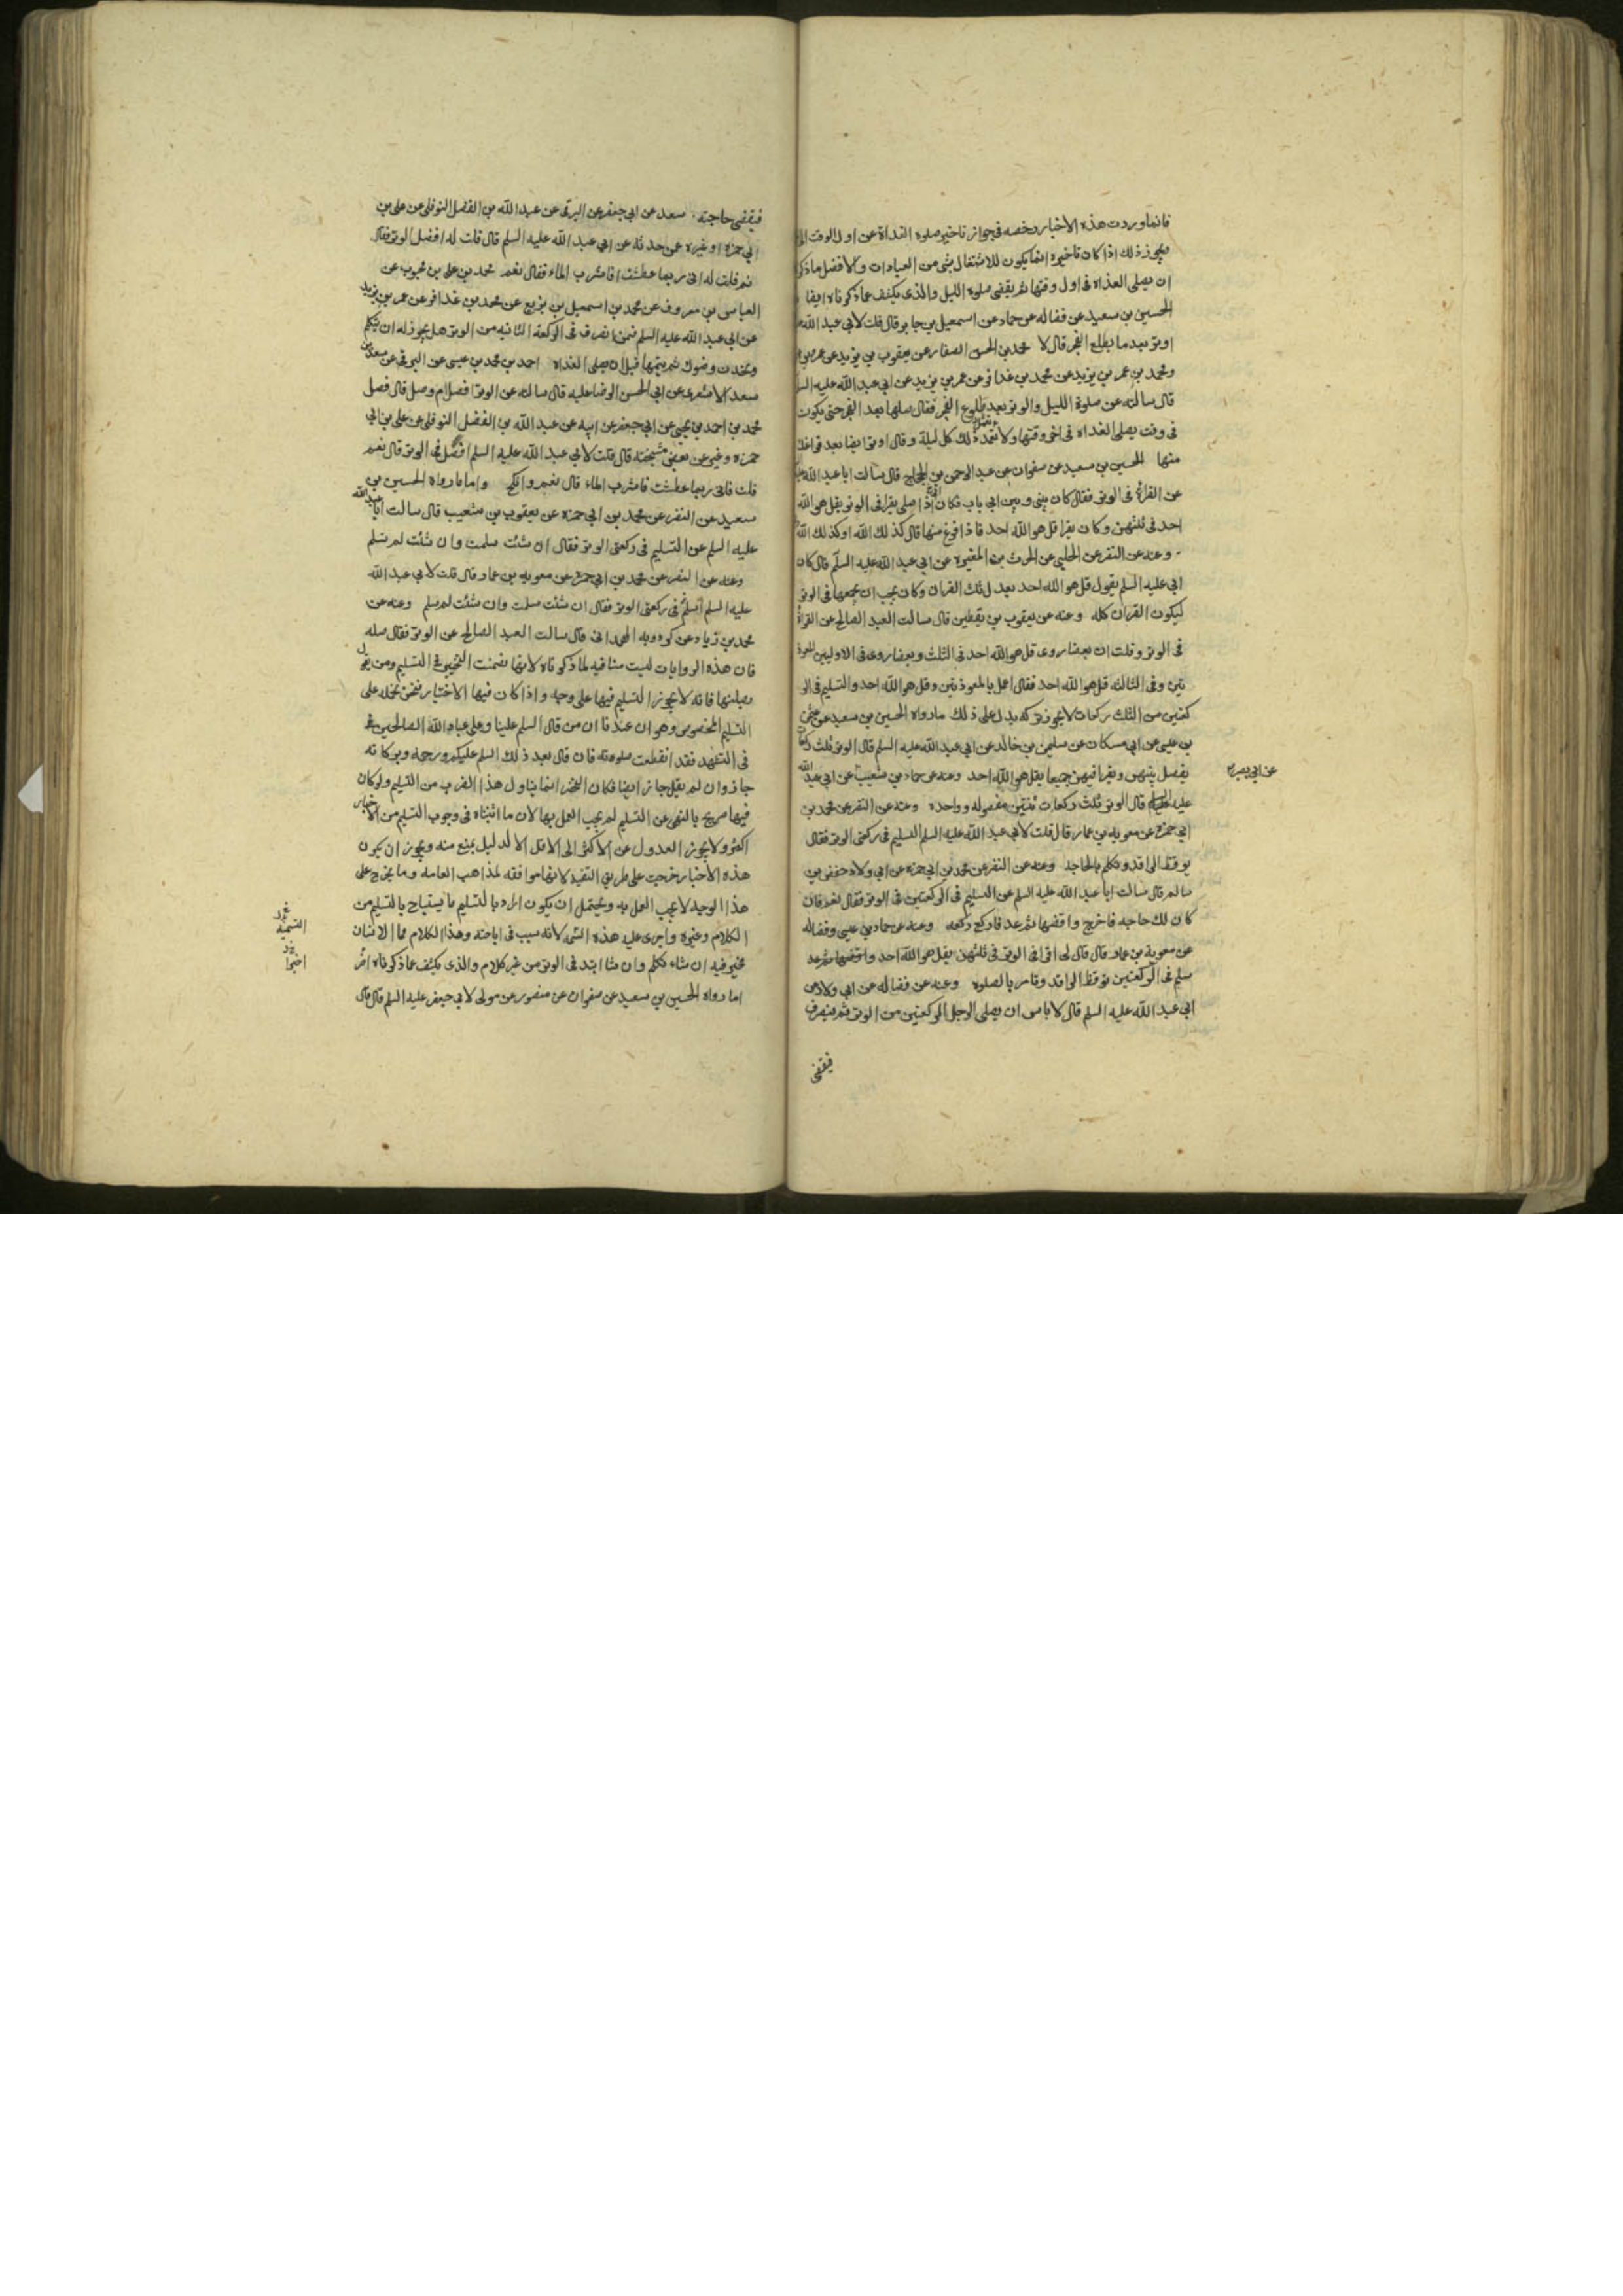 فانما وردت هذه الاخبار رخصه فى جواز تاخير صلوة الغداة عن اول الوقت الى
ويجوز ذلك اذا كان تاخيره انما يكون للاشتغال بشى من العبادات والافضل ما ذكرنا
ان يصلى الغداه فى اول وقتها ثم يقضى صلوة الليل والذى يكشف عما ذكرناه ايضا
الحسين بن سعيد عن فضاله عن حماد عن اسمعيل بن جابر قال قلت لابى عبد الله
اوتر بعد ما يطلع الفجر قال لا محمد بن الحسن الصفار عن يعقوب بن يزيد عن عمر بن
ومحمد بن عمر بن يزيد عن محمد بن عذافر عن عمر بن يزيد عن ابى عبد الله عليه السلم
قال سالته عن صلوة الليل والوتر بعد طلوع الفجر فقال صلها بعد الفجر حتى يكون
فى وقت يصلى الغداه فى اخر وقتها ولا تعمد ذلك كل ليلة وقال اوتر ايضا بعد فراغك
منها الحسين بن سعيد عن صفوان عن عبد الرحمن بن الحجاج قال سالت ابا عبد الله
عن القراءة فى الوتر فقال كان بينى وبين ابى باب فكان اذا صلى يقرا فى الوتر بقل هو الله
احد فى ثلثهن وكان يقرا قل هو الله احد فاذا فرغ منها قال كذلك الله او كذلك الله
وعنه عن النضر عن الحلبى عن الحرث بن المغيرة عن ابى عبد الله عليه السلم قال كان
ابى عليه السلم يقول قل هو الله احد بعدل ثلث القران وكان يحب ان يجمعها فى الوتر
ليكون القران كله وعنه عن يعقوب بن يقطين قال سالت العبد الصالح عن القراءة
فى الوتر وقلت ان بعضا روى قل هو الله احد فى الثلث وبعضا روى فى الاوليين المعوذ
تين وفى الثالثه قل هو الله احد فقال اعمل بالمعوذتين وقل هو الله احد والتسليم فى الر
كعتين من الثلث ركعات لا يجوز تركه يدل على ذلك ما رواه الحسين بن سعيد عن عثمن
بن عيسى عن ابن مسكان عن سليمن بن خالد عن ابى عبد الله عليه السلم قال الوتر ثلث ركعات
يفصل بينهن ويقرا فيهن جميعا بقل هو الله احد وعنه عن حماد بن شعيب عن ابى عبد الله
عن ابى بصير
عليه السلم قال الوتر ثلث ركعات ثنتين مفصوله وواحده وعنه عن النضر عن محمد بن
ابى حمزه عن معويه بن عمار قال قلت لابى عبد الله عليه السلم التسليم فى ركعتى الوتر فقال
يوقظ الراقد وتكلم بالحاجه وعنه عن النضر عن محمد بن ابى حمزه عن ابى ولاد حفص بن
سالم قال سالت ابا عبد الله عليه السلم عن التسليم فى الركعتين فى الوتر فقال نعم فان
كان لك حاجه فاخرج واقضها ثم عد فاركع ركعه وعنه عن حماد بن عيسى وفضاله
عن معوية بن عمار قال قال لى اقرا فى الوتر فى ثلثهن بقل هو الله احد
سلم فى الركعتين توقظ الراقد وتامر بالصلوه وعنه عن فضاله عن ابى ولاد عن
ابى عبد الله عليه السلم قال لا باس ان يصلى الرجل الركعتين من الوتر ثم ينصرف
فيقضى
فيقضى حاجته سعد عن ابى جعفر عن البرقى عن عبد الله بن الفضل النوفلى عن على بن
ابى حمزه او غيره عن حدثه عن ابى عبد الله عليه السلم قال قلت له افصل الوتر فقال
نعم قلت له انى ربما عطشت افاشرب الماء فقال نعم محمد بن على بن محبوب عن
العباس بن معروف عن محمد بن اسمعيل بن بزيع عن محمد بن عذافر عن عمر بن يزيد
عن ابى عبد الله عليه السلم فيمن انصرف فى الركعه الثانيه من الوتر هل يجوز له ان يتكلم
ويحدث وضوك ثم يتمها قبل ان يصلى الغداه احمد بن محمد بن عيسى عن البرقى عن سعد بن
سعد الاشعرى عن ابى الحسن الرضا عليه قال سالته عن الوتر افصل ام وصل قال فصل
محمد بن احمد بن يحيى عن ابى جعفر عن ابيه عن عبد الله بن الفضل النوفلى عن على بن ابى
حمزه وغيره عن بعض مشيخته قال قلت لابى عبد الله عليه السلم افصل فى الوتر قال نعم
قلت فانى ربما عطشت فاشرب الماء قال نعم وانكح واما ما رواه الحسين بن
سعيد عن النضر عن محمد بن ابى حمزه عن يعقوب بن شعيب قال سالت ابا عبد الله
عليه السلم عن التسليم فى ركعتى الوتر فقال ان شئت سلمت وان شئت لم تسلم
وعنه عن النضر عن محمد بن ابى حمزه عن معويه بن عمار قال قلت لابى عبد الله
عليه السلم اسلم فى ركعتى الوتر فقال ان شئت سلمت وان شئت لم تسلم وعنه عن
محمد بن زياد عن كردويه الهمدانى قال سالت العبد الصالح عن الوتر فقال صله
فان هذه الروايات ليست منافيه لما ذكرناه لانها تضمنت التخيير فى التسليم ومن يقول
بصلتها فانه لا يجوز التسليم فيها على وجه واذا كان فيها الاختيار فنحن نحمله على
التسليم المخصوص وهو ان عندنا ان من قال السلم علينا وعلى عباد الله الصالحين فى
فى التشهد فقد انقطعت صلوته فان قال بعد ذلك السلم عليكم ورحمه وبركاته
جاز وان لم يقل جاز ايضا فكان التخيير انما يتناول هذا الضرب من التسليم ولو كان
فيها صريح بالنهى عن التسليم لم يجب العمل بها لان ما اثبتناه فى وجوب التسليم من الاخبار
اكثر ولا يجوز العدول عن الاكثر الى الاقل الا لدليل يمنع منه ويجوز ان يكون
هذه الاخبار خرجت على طريق التقيه لانها موافقه لمذاهب العامه وما يخرج على
هذا الوجه لا يجب العمل به ويحتمل ان يكون اراد بالتسليم ما يستباح بالتسليم من
الكلام وغيره واجرى عليه هذه التسمه لانه سبب فى اباحته وهذا الكلام مما الانسان
التسميه
مخير فيه ان شاء تكلم وان شا ابتد فى الوتر من غير كلام والذى يكشف عما ذكرناه اخر
ما رواه الحسين بن سعيد عن صفوان عن منصور عن مولى لابى جعفر عليه السلم قال قال